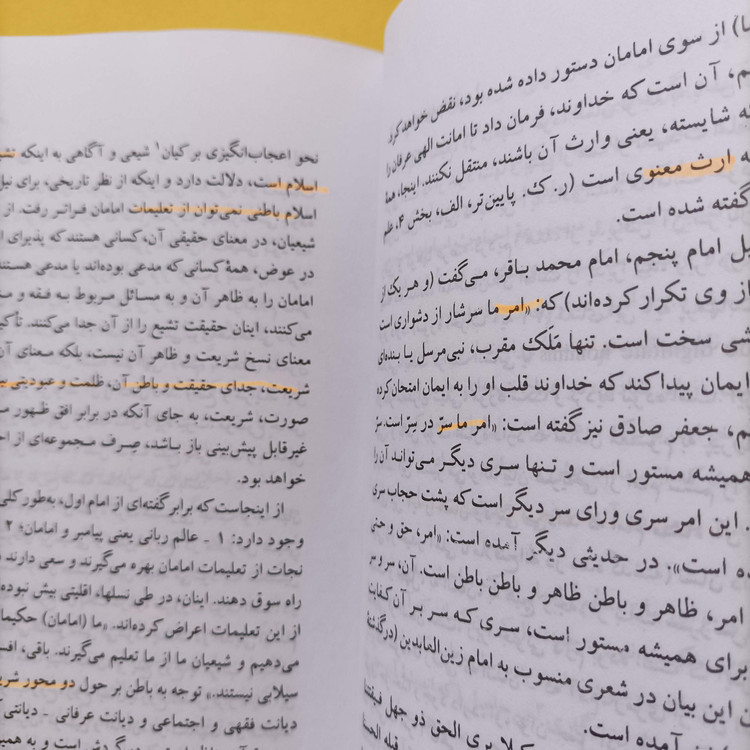 ما) از سوی امامان دستور داده شده بود، نقض خواهد کرد.
آن است که خداوند، فرمان داد تا امانت الهی عرفان را
شایسته، یعنی وارث آن باشند، منتقل نکنند. اینجا، همه
ارث معنوی است (ر. ک. پایین‌تر، الف، بخش ۴، علم
گفته شده است.
امام پنجم، امام محمد باقر، می‌گفت (و هر یک از
از وی تکرار کرده‌اند) که: «امر ما سرشار از دشواری است
سخت است. تنها مَلَک مقرب، نبی مرسل یا بنده‌ای
ایمان پیدا کند که خداوند قلب او را به ایمان امتحان کرده
جعفر صادق نیز گفته است: «امر ما سرّ در سرّ است، سرّ
همیشه مستور است و تنها سری دیگر می‌تواند آن را
این امر سری ورای سر دیگر است که پشت حجاب سری
است». در حدیثی دیگر آمده است: «امر، حق و حتی
امر، ظاهر و باطن ظاهر و باطن باطن است. آن، سر و سر
برای همیشه مستور است، سری که سر بر آن کفایت
این بیان در شعری منسوب به امام زین‌العابدین
بری الحق ذو جهل
آمده است.
نحو اعجاب‌انگیزی بر کیان۱ شیعی و آگاهی به اینکه
اسلام است، دلالت دارد و اینکه از نظر تاریخی، برای نیل
اسلام باطنی نمی‌توان از تعلیمات امامان فراتر رفت. از
شیعیان، در معنای حقیقی آن، کسانی هستند که پذیرای
در عوض، همهٔ کسانی که مدعی بوده‌اند یا مدعی هستند
امامان را به ظاهر آن و به مسائل مربوط به فقه و
می‌کنند، اینان حقیقت تشیع را از آن جدا می‌کنند. تأکید
معنای نسخ شریعت و ظاهر آن نیست، بلکه معنای آن
شریعت، جدای حقیقت و باطن آن، ظلمت و عبودیتی
صورت، شریعت، به جای آنکه در برابر افق ظهور
غیرقابل پیش‌بینی باز باشد، صِرف مجموعه‌ای از
خواهد بود.
از اینجاست که برابر گفته‌ای از امام اول، به‌طور کلی
وجود دارد: ۱ - عالم ربانی یعنی پیامبر و امامان؛ ۲
نجات از تعلیمات امامان بهره می‌گیرند و سعی دارند
راه سوق دهند. اینان، در طی نسلها، اقلیتی بیش نبوده
از این تعلیمات اعراض کرده‌اند. «ما (امامان) حکیمان
می‌دهیم و شیعیان ما از ما تعلیم می‌گیرند. باقی،
سیلابی نیستند.» توجه به باطن بر حول دو محور
دیانت فقهی و اجتماعی و دیانت عرفانی - دیانتی